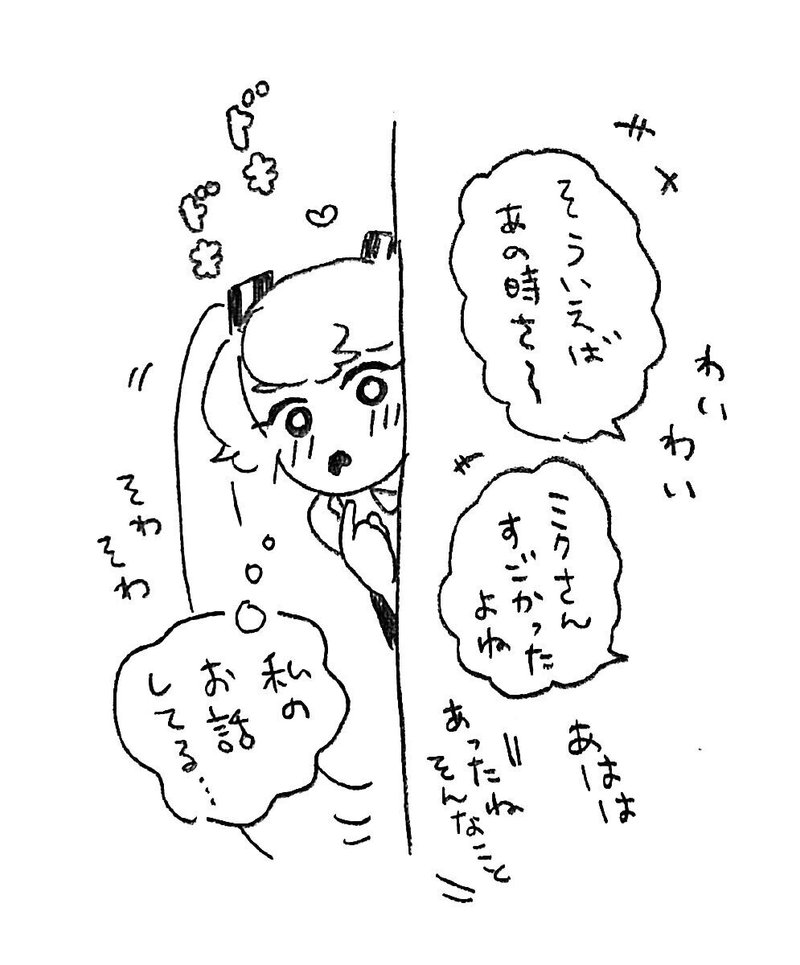 そういえば
あの時さ〜
わいわい
ミクさん
すごかった
よね
あははー
あったね
そんなこと
ドキ
ドキ
そわ
そわ
私の
お話
してる…